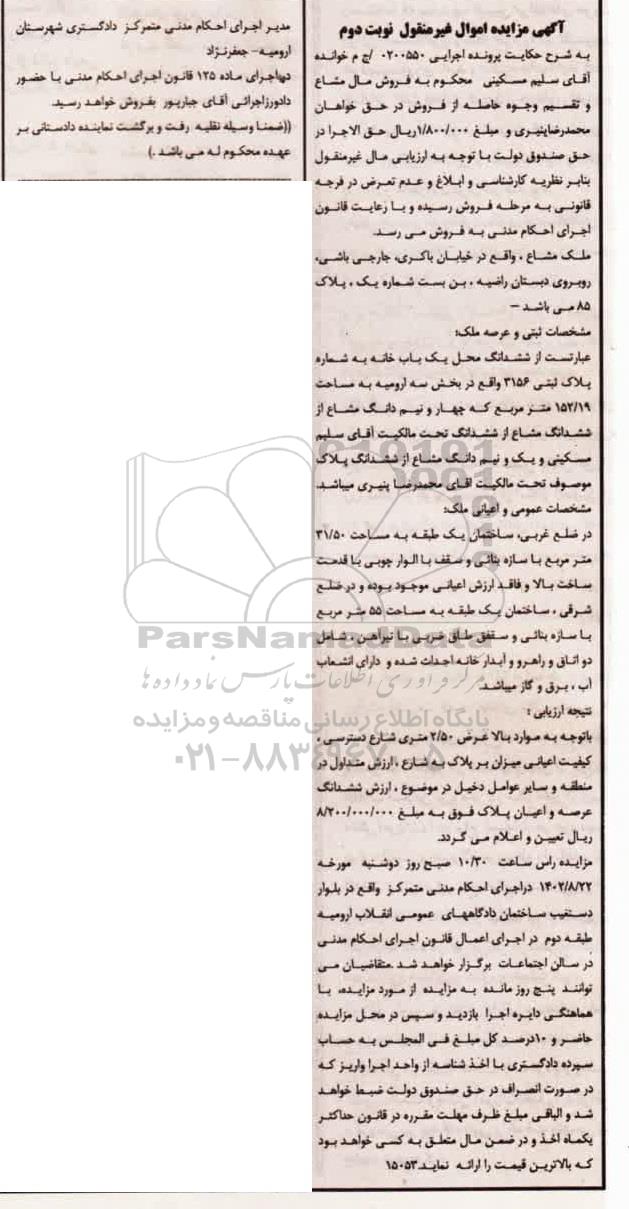 آگهی مزایده اموال غیرمنقول نوبت دوم
به شرح حکایت پرونده اجرایی ۰۲۰۰۵۵۰ /ج م خوانده
آقای سلیم مسکینی محکوم به فروش مال مشاع
و تقسیم وجوه حاصله از فروش در حق خواهان
محمدرضاپنیری و مبلغ ۱/۸۰۰/۰۰۰ریال حق الاجرا در
حق صندوق دولت با توجه به ارزیابی مال غیرمنقول
بنابر نظریه کارشناسی و ابلاغ و عدم تعرض در فرجه
قانونی به مرحله فروش رسیده و با رعایت قانون
اجرای احکام مدنی به فروش می رسد.
ملک مشاع ، واقع در خیابان باکری، جارجی باشی،
روبروی دبستان راضیه ، بن بست شماره یک ، پلاک
۸۵ می باشد –
مشخصات ثبتی و عرصه ملک:
عبارتست از ششدانگ محل یک باب خانه به شماره
پلاک ثبتی ۳۱۵۶ واقع در بخش سه ارومیه به مساحت
۱۵۲/۱۹ متر مربع که چهار و نیم دانگ مشاع از
ششدانگ مشاع از ششدانگ تحت مالکیت آقای سلیم
مسکینی و یک و نیم دانگ مشاع از ششدانگ پلاک
موصوف تحت مالکیت اقای محمدرضا پنیری میباشد.
مشخصات عمومی و اعیانی ملک:
در ضلع غربی، ساختمان یک طبقه به مساحت ۳۱/۵۰
متر مربع با سازه بنائی و سقف با الوار چوبی با قدمت
ساخت بالا و فاقد ارزش اعیانی موجود بوده و در ضلع
شرقی ، ساختمان یک طبقه به مساحت ۵۵ متر مربع
با سازه بنائی و سقفق طاق ضربی با تیرآهن ، شامل
دو اتاق و راهرو و آبدار خانه احداث شده و دارای انشعاب
آب ، برق و گاز میباشد.
نتیجه ارزیابی :
باتوجه به موارد بالا عرض ۲/۵۰ متری شارع دسترسی ،
کیفیت اعیانی میزان بر پلاک به شارع ، ارزش متداول در
منطقه و سایر عوامل دخیل در موضوع ، ارزش ششدانگ
عرصه و اعیان پلاک فوق به مبلغ ۸/۲۰۰/۰۰۰/۰۰۰
ریال تعیین و اعلام می گردد.
مزایده راس ساعت ۱۰/۳۰ صبح روز دوشنبه مورخه
۱۴۰۲/۸/۲۲ دراجرای احکام مدنی متمرکز واقع در بلوار
دستغیب ساختمان دادگاههای عمومی انقلاب ارومیه
طبقه دوم در اجرای اعمال قانون اجرای احکام مدنی
در سالن اجتماعات برگزار خواهد شد .متقاضیان می
توانند پنج روز مانده به مزایده از مورد مزایده، با
هماهنگی دایره اجرا بازدید و سپس در محل مزایده
حاضر و ۱۰درصد کل مبلغ فی المجلس به حساب
سپرده دادگستری با اخذ شناسه از واحد اجرا واریز که
در صورت انصراف در حق صندوق دولت ضبط خواهد
شد و الباقی مبلغ ظرف مهلت مقرره در قانون حداکثر
یکماه اخذ و در ضمن مال متعلق به کسی خواهد بود
که بالاترین قیمت را ارائه نماید.۱۵۰۵۳
مدیر اجرای احکام مدنی متمرکز دادگستری شهرستان
ارومیه– جعفرنژاد
دبهاجرای ماده ۱۲۵ قانون اجرای احکام مدنی با حضور
دادورزاجرائی آقای جبارپور بفروش خواهد رسید.
((ضمنا وسیله نقلیه رفت و برگشت نماینده دادستانی بر
عهده محکوم له می باشد .)
ParsNamadData
مرکز فرآوری اطلاعات پارس نماد داده ها
پایگاه اطلاع رسانی مناقصه و مزایده
۰۲۱-۸۸۳۴۹۶۷۰-۵